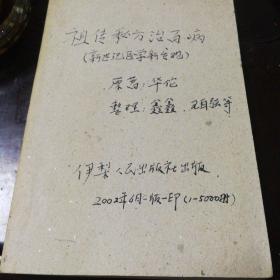 祖传秘方治百病
(新世纪医学新宝鉴)
原著:华佗
整理:鑫鑫、
伊犁人民出版社出版
2002年6月一版一印(1-5000册)